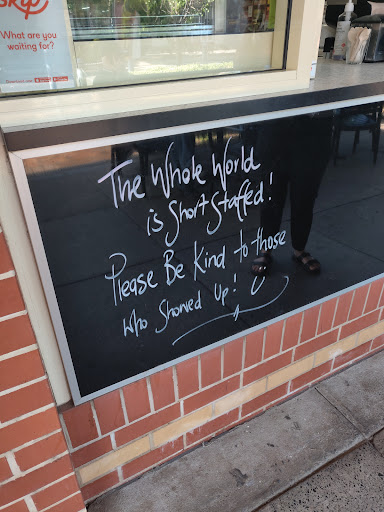 What are you
waiting for?
The Whole World
is Short Staffed!
Please Be Kind to those
who Showed Up!